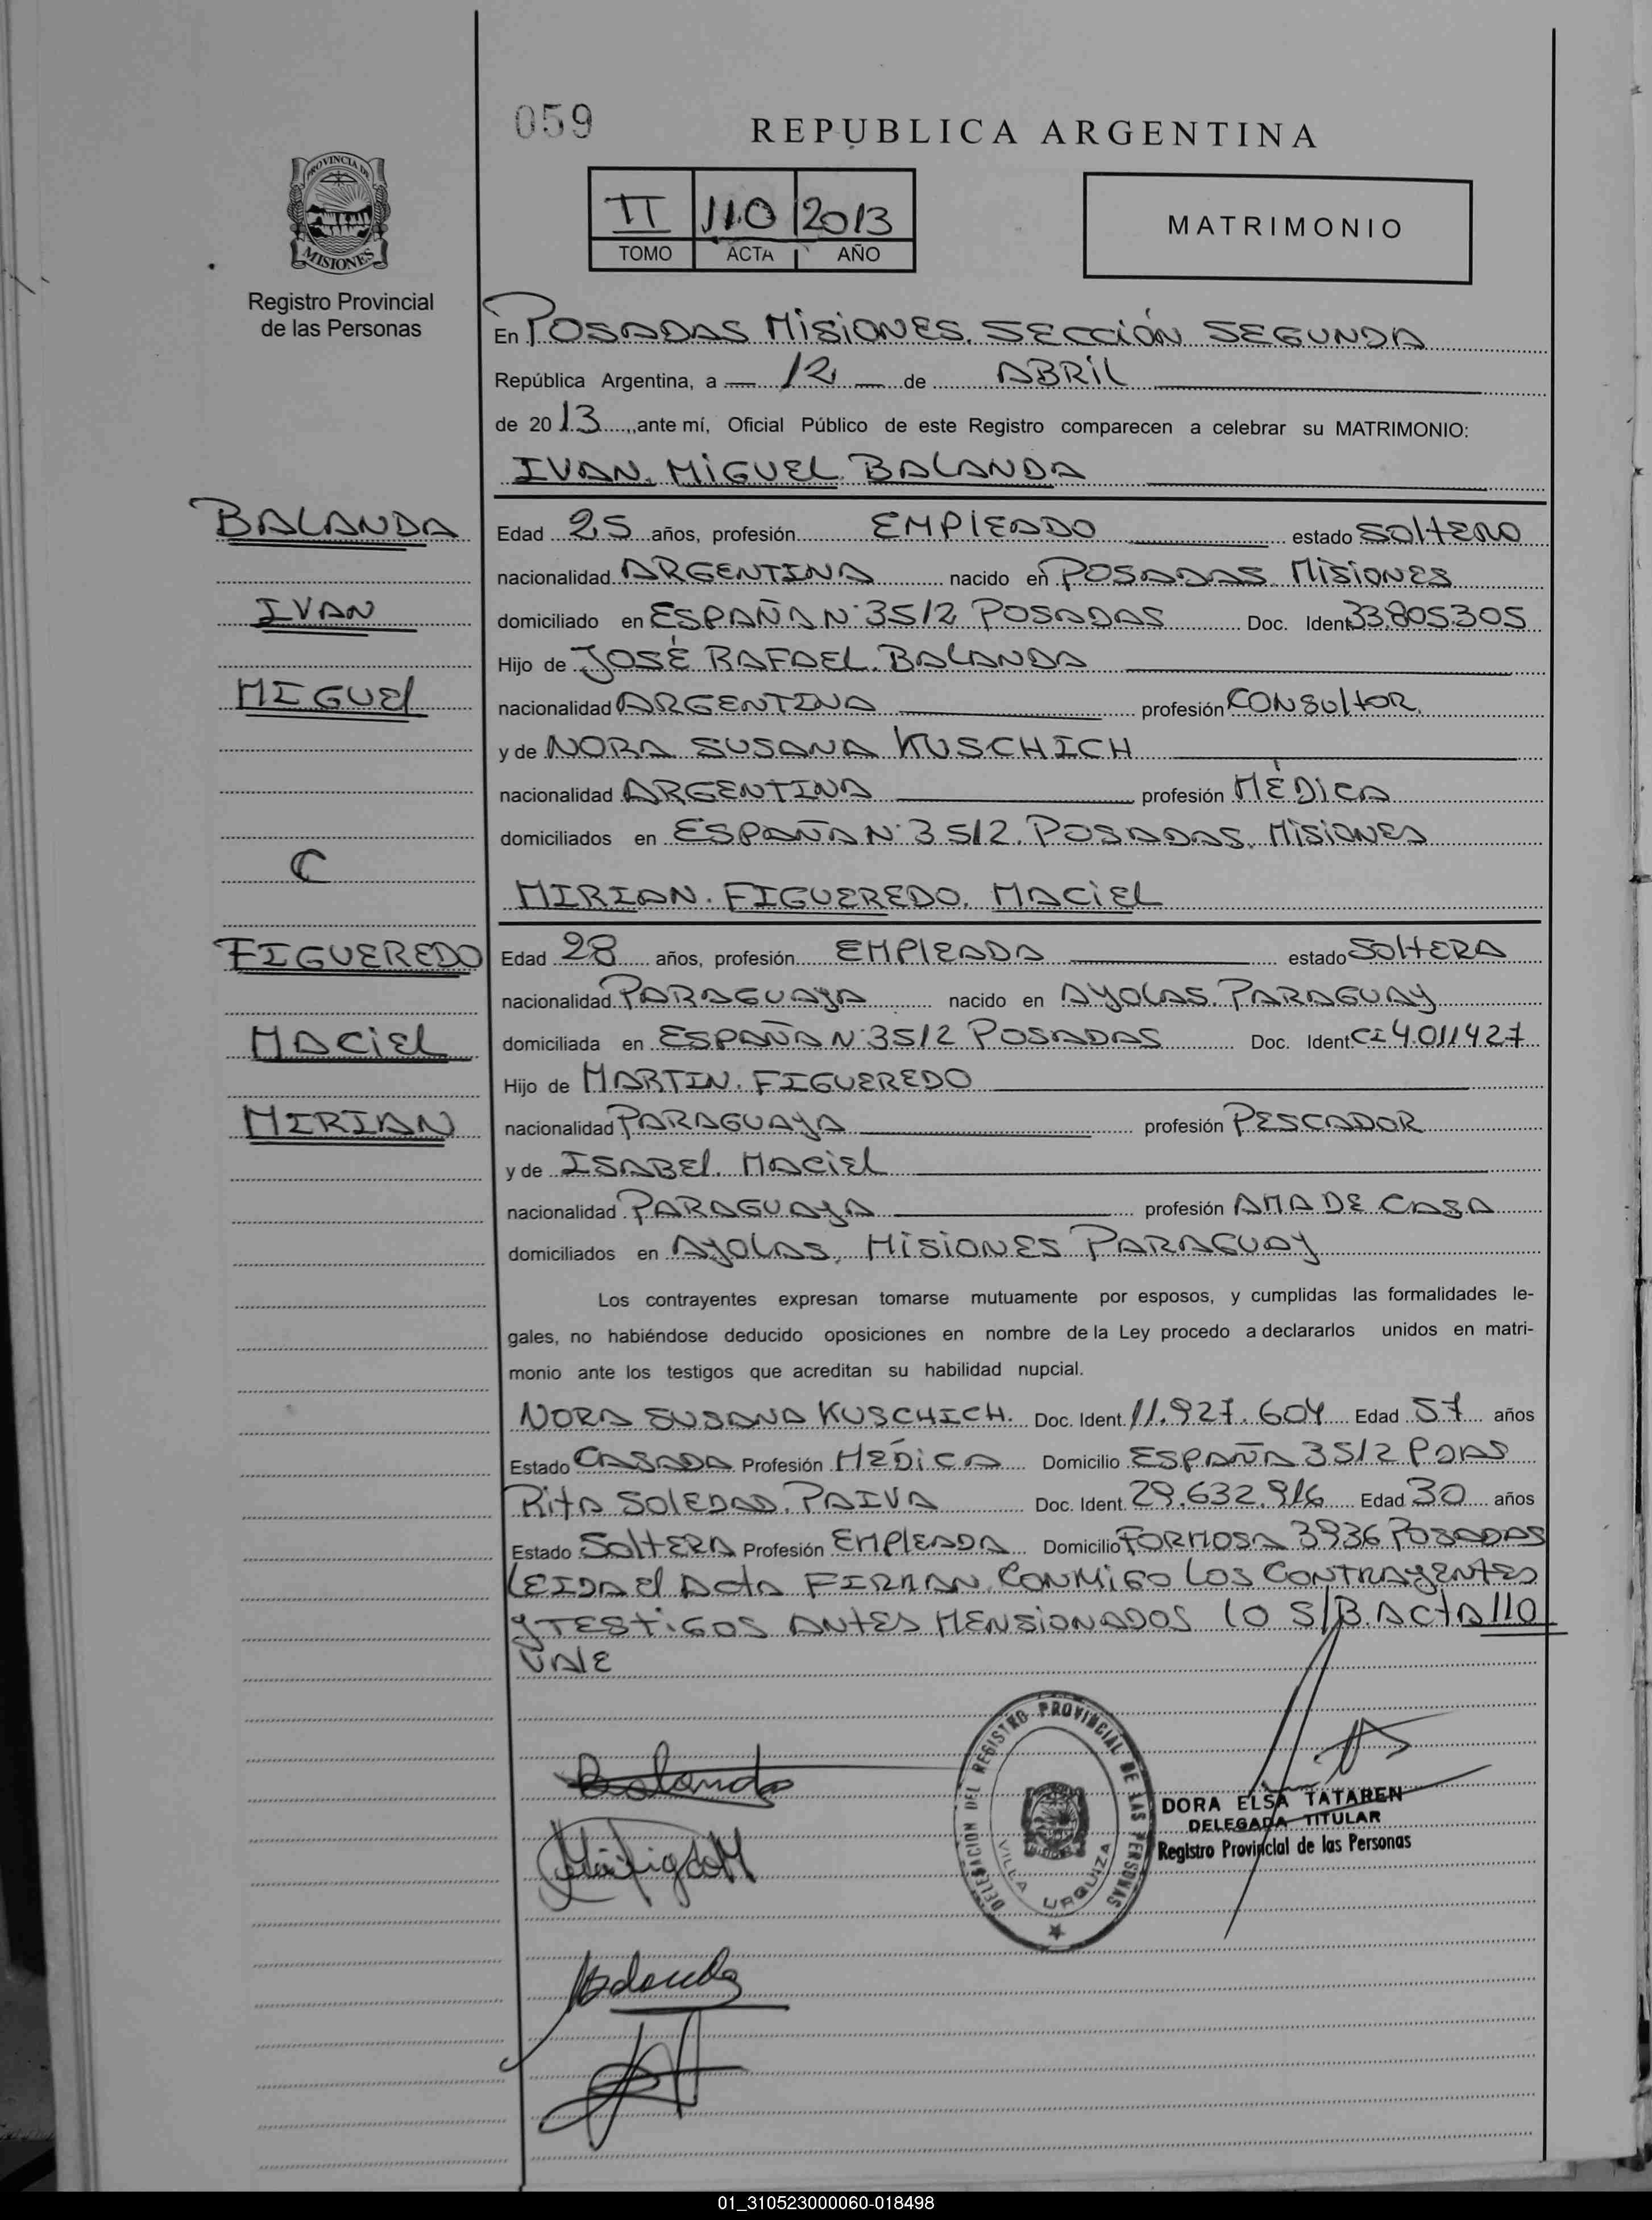 059
REPUBLICA ARGENTINA
PROVINCIA DE
MISIONES
Registro Provincial
de las Personas
II 110 2013
TOMO ACTA AÑO
MATRIMONIO
En POSADAS MISIONES. SECCIÓN SEGUNDA
República Argentina, a 12 de ABRIL
de 2013, ante mí, Oficial Público de este Registro comparecen a celebrar su MATRIMONIO:
IVAN MIGUEL BALANDA
BALANDA
IVAN
MIGUEL
C
FIGUEREDO
MACIEL
MIRIAN
Edad 25 años, profesión EMPLEADO estado SOLTERO
nacionalidad ARGENTINA nacido en POSADAS MISIONES
domiciliado en ESPAÑA N° 3512 POSADAS Doc. Ident 33.805.305
Hijo de JOSÉ RAFAEL BALANDA
nacionalidad ARGENTINA profesión CONSULTOR
y de NORA SUSANA KUSCHICH
nacionalidad ARGENTINA profesión MÉDICA
domiciliados en ESPAÑA N° 3512. POSADAS. MISIONES
MIRIAN FIGUEREDO MACIEL
Edad 28 años, profesión EMPLEADA estado SOLTERA
nacionalidad PARAGUAYA nacido en AYOLAS. PARAGUAY
domiciliada en ESPAÑA N° 3512 POSADAS Doc. Ident CI 4.011427
Hijo de MARTIN FIGUEREDO
nacionalidad PARAGUAYA profesión PESCADOR
y de ISABEL MACIEL
nacionalidad PARAGUAYA profesión AMA DE CASA
domiciliados en AYOLAS, MISIONES PARAGUAY
Los contrayentes expresan tomarse mutuamente por esposos, y cumplidas las formalidades le-
gales, no habiéndose deducido oposiciones en nombre de la Ley procedo a declararlos unidos en matri-
monio ante los testigos que acreditan su habilidad nupcial.
NORA SUSANA KUSCHICH. Doc. Ident. 11.927.604 Edad 57 años
Estado CASADA Profesión MÉDICA Domicilio ESPAÑA 3512 PDAS
RITA SOLEDAD PAIVA Doc. Ident. 29.632.916 Edad 30 años
Estado SOLTERA Profesión EMPLEADA Domicilio FORMOSA 3936 POSADAS
LEIDA El ACTA FIRMAN CONMIGO LOS CONTRAYENTES
Y TESTIGOS ANTES MENSIONADOS LO S/B. ACTA 110
VALE
Balanda
DELEGACION DEL REGISTRO PROVINCIAL DE LAS PERSONAS
VILLA URQUIZA
DORA ELSA TATAREN
DELEGADA TITULAR
Registro Provincial de las Personas
01_310523000060-018498